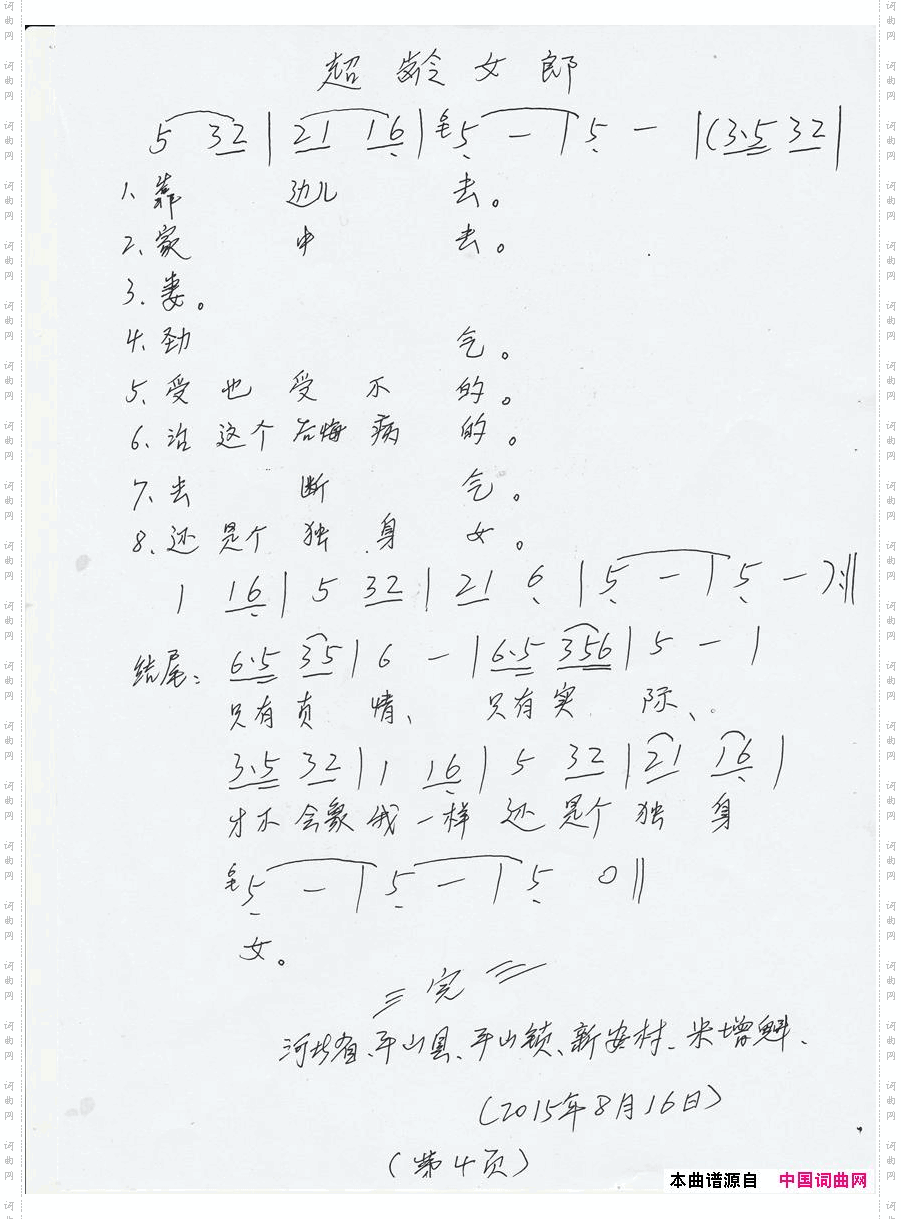 超龄女郎
5 32 | 21 16 | 5 - | 5 - | (3·5 32 |
1、靠 边儿 去。
2、家 中 去。
3、妻。
4、劲 气。
5、受也受不的。
6、治这个后悔病的。
7、去 断 气。
8、还是个独身女。
1 16 | 5 32 | 21 6 | 5 - | 5 - ):‖
结尾: 6·5 35 | 6 - | 6·5 356 | 5 - |
只有真情、只有实际、
3·5 32 | 1 16 | 5 32 | 21 16 |
才不会象我一样还是个独身
5 - | 5 - | 5 0 ‖
女。
完
河北省、平山县、平山镇、新安村、米增魁、
(2015年8月16日)
(第4页)
本曲谱源自 中国词曲网